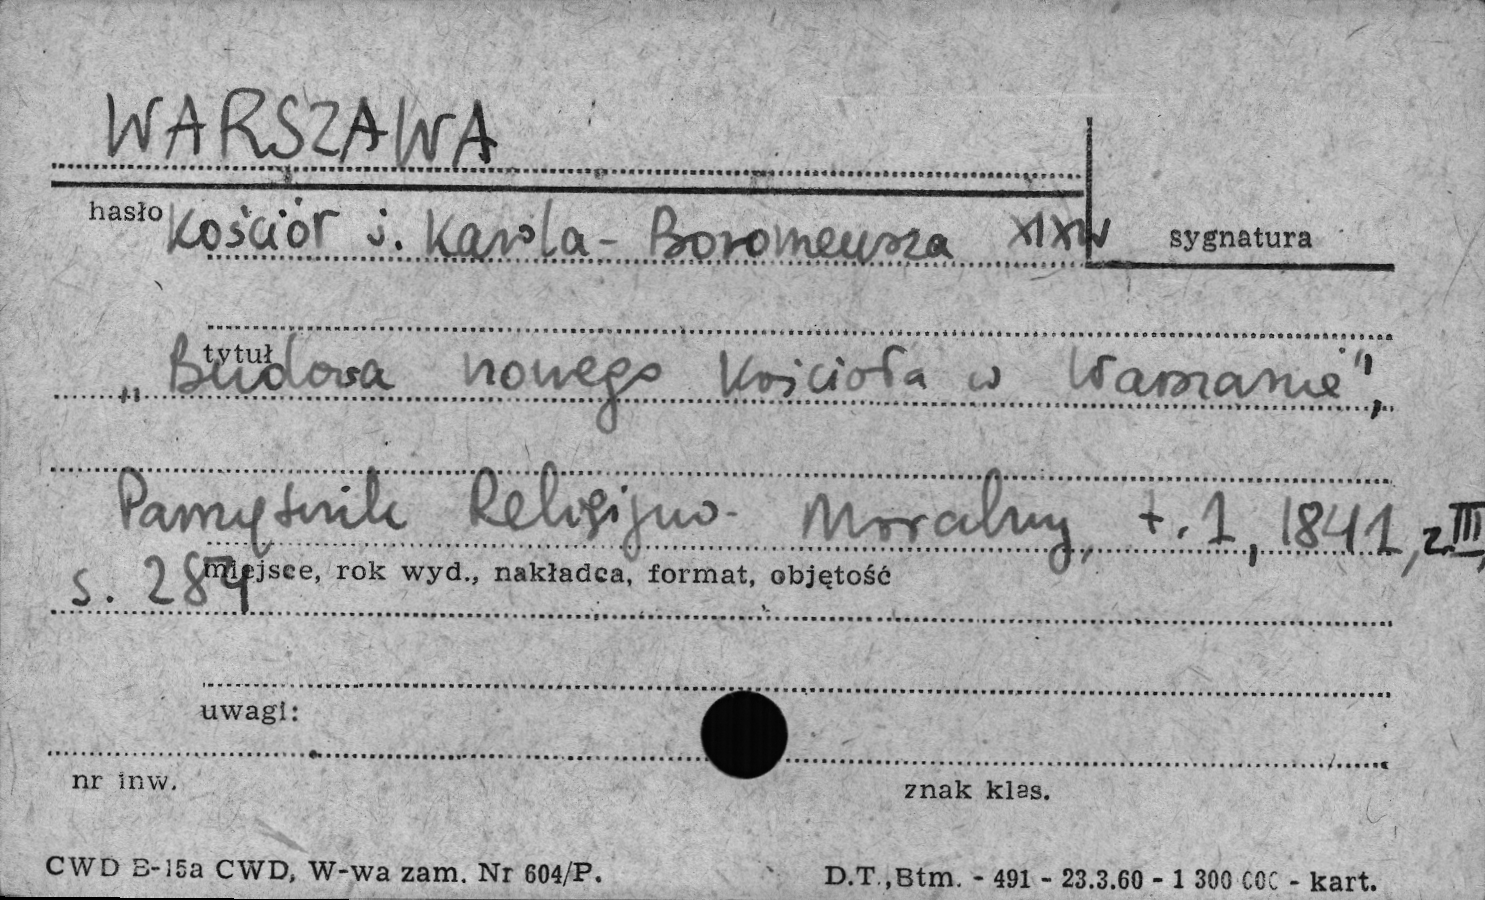 WARSZAWA
hasło Kościół ś. Karola-Boromeusza XIXw sygnatura
tytuł
„Budowa nowego Kościoła w Warszawie",
Pamiętnik Religijno-Moralny, t. 1, 1841, z. III,
s. 284
miejsce, rok wyd., nakładca, format, objętość
uwagi:
nr inw. znak klas.
CWD B-15a CWD, W-wa zam. Nr 604/P. D.T.,Btm. - 491 - 23.3.60 - 1 300 000 - kart.